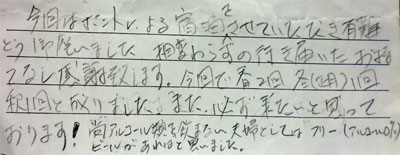 今回はポイントによる宿泊をさせていただき有難
どうございました 相変わらずの行き届いたお持
てなし感謝致します。今回で春2回 冬(2月)1回
秋1回と成りました。また、必ず来たいと思って
おります! 尚アルコール類を飲まない夫婦としては フリー(アルコール0%)
ビールがあればと思いました。